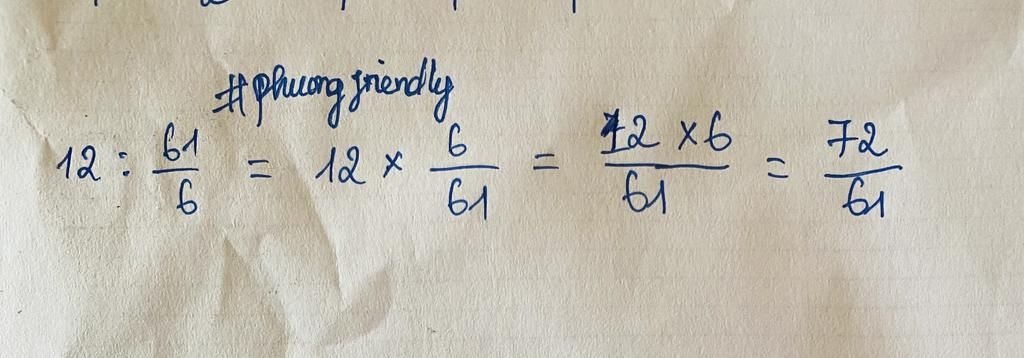 #phuongfriendly
12 : 61/6 = 12 × 6/61 = 12 × 6/61 = 72/61